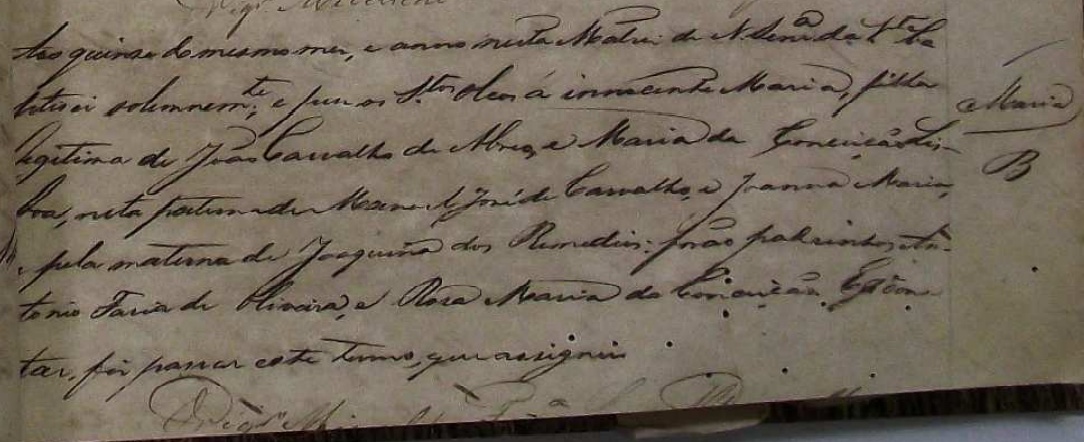 Vigr.º
Aos quinze do mesmo mez, e anno nesta Matriz de N. Senr.ª da V.ta ba
ptisei solemnem.te, e puz os S.tos Oleos á innocente Maria, filha
legitima de João Carvalho de Abreo, e Maria da Conceição Lis-
boa, neta paterna de Manoel José de Carvalho, e Joanna Maria,
e pela materna de Joaquina dos Remedios: forão padrinhos An-
tonio Faria de Oliveira, e Rosa Maria da Conceição. E p.ª cons-
tar, fiz passar este termo, que assignei
O Vigr.º
Maria
B